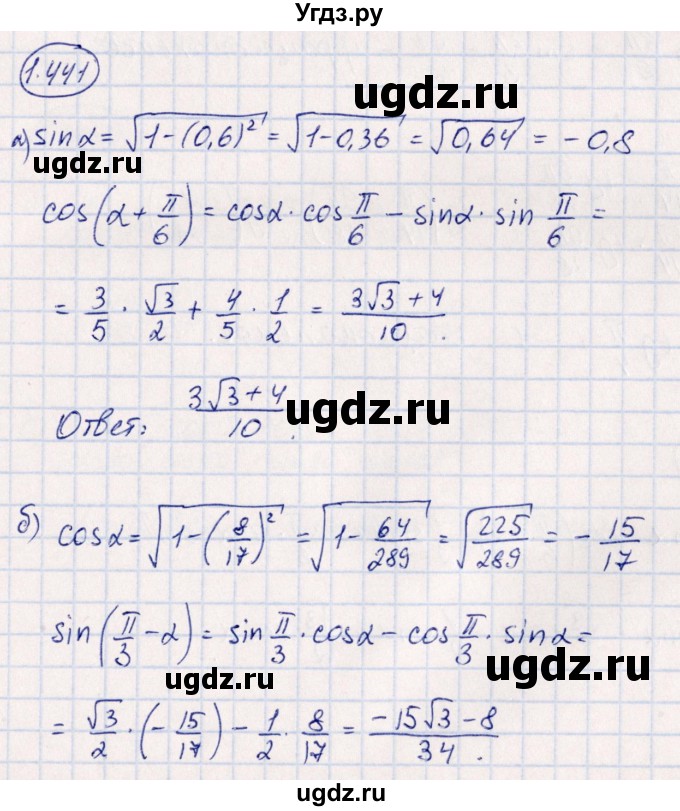 Угдз.ру
1.441
ugdz.ru
а) sinα = √(1-(0,6)²) = √(1-0,36) = √(0,64) = -0,8
ugdz.ru
cos(α + π/6) = cosα · cos π/6 - sinα · sin π/6 =
= 3/5 · √3/2 + 4/5 · 1/2 = (3√3 + 4)/10.
Ответ: (3√3 + 4)/10.
ugdz.ru
б) cosα = √(1-(8/17)²) = √(1- 64/289) = √(225/289) = - 15/17
sin(π/3 - α) = sin π/3 · cosα - cos π/3 · sinα =
ugdz.ru
ugdz.ru
= √3/2 · (- 15/17) - 1/2 · 8/17 = (-15√3 - 8)/34.
ugdz.ru